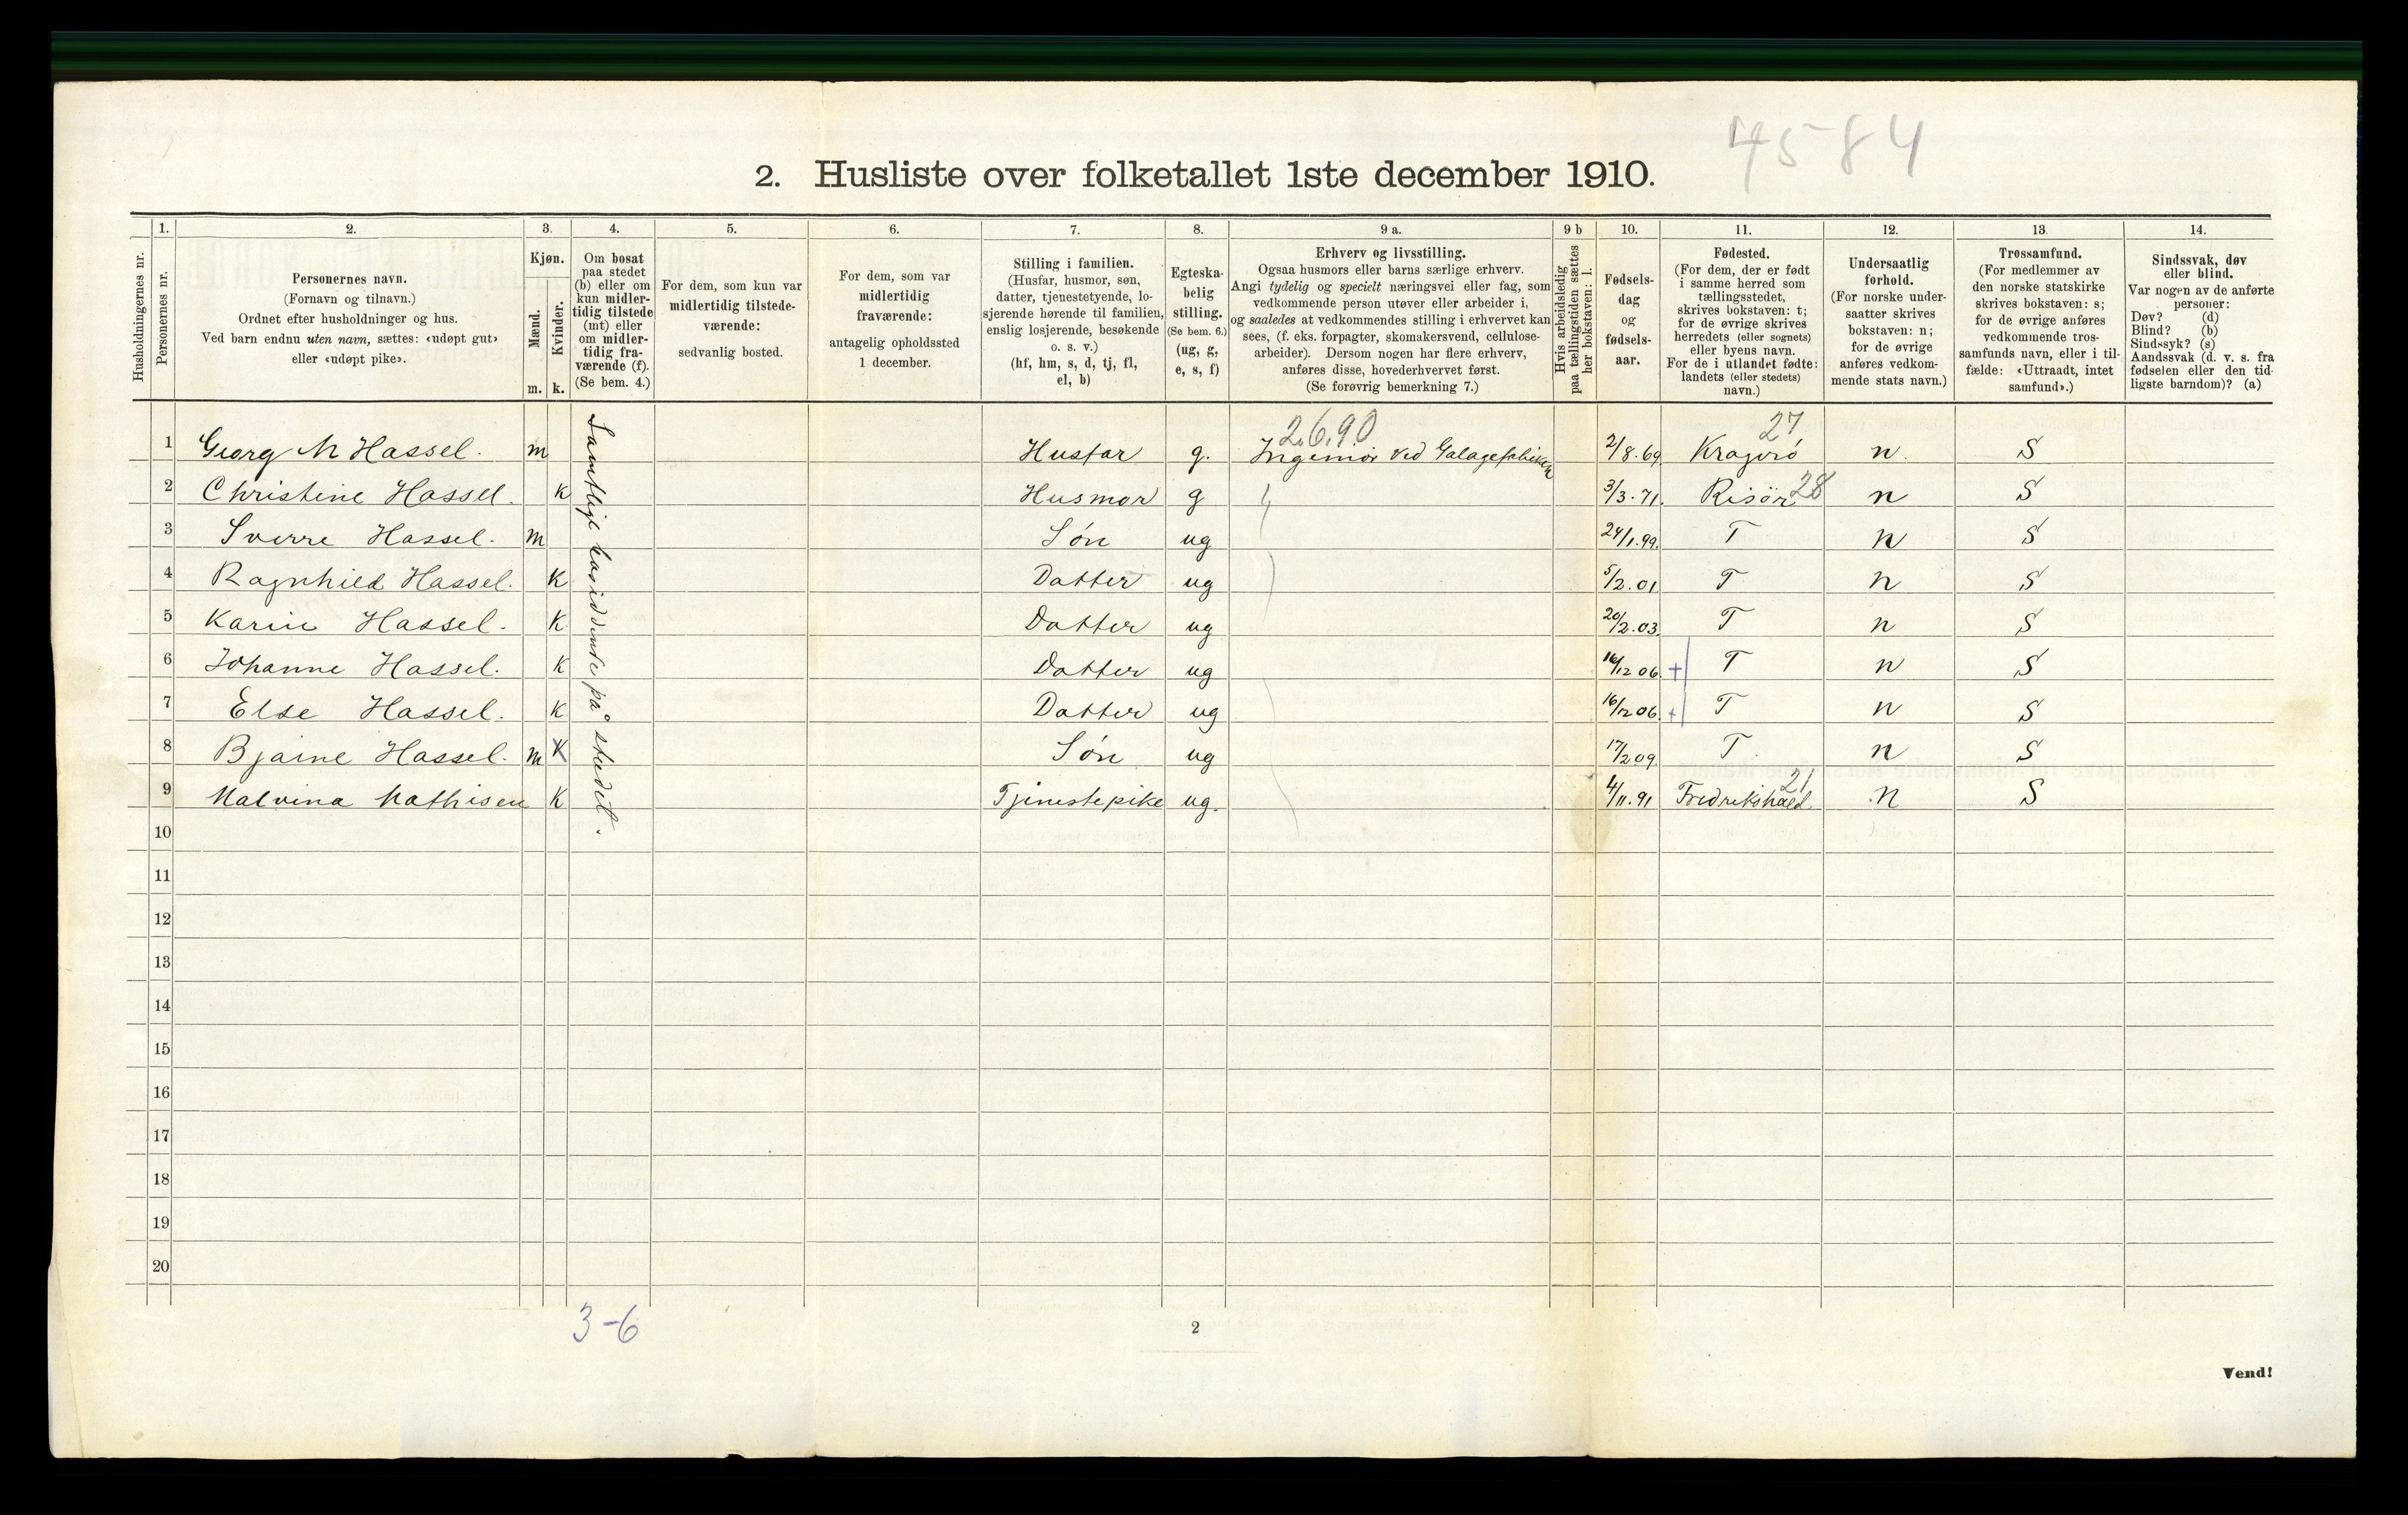 4584
2. Husliste over folketallet 1ste december 1910.
Husholdningernes nr.
1. Personernes nr.
2. Personernes navn.
(Fornavn og tilnavn.)
Ordnet efter husholdninger og hus.
Ved barn endnu uten navn, sættes: «udøpt gut»
eller «udøpt pike».
3. Kjøn.
Mænd. m.
Kvinder. k.
4. Om bosat
paa stedet
(b) eller om
kun midler-
tidig tilstede
(mt) eller
om midler-
tidig fra-
værende (f).
(Se bem. 4.)
5. For dem, som kun var
midlertidig tilstede-
værende:
sedvanlig bosted.
6. For dem, som var
midlertidig
fraværende:
antagelig opholdssted
1 december.
7. Stilling i familien.
(Husfar, husmor, søn,
datter, tjenestetyende, lo-
sjerende hørende til familien,
enslig losjerende, besøkende
o. s. v.)
(hf, hm, s, d, tj, fl,
el, b)
8. Egteska-
belig
stilling.
(Se bem. 6.)
(ug, g,
e, s, f)
9 a. Erhverv og livsstilling.
Ogsaa husmors eller barns særlige erhverv.
Angi tydelig og specielt næringsvei eller fag, som
vedkommende person utøver eller arbeider i,
og saaledes at vedkommendes stilling i erhvervet kan
sees, (f. eks. forpagter, skomakersvend, cellulose-
arbeider). Dersom nogen har flere erhverv,
anføres disse, hovederhvervet først.
(Se forøvrig bemerkning 7.)
9 b Hvis arbeidsledig
paa tællingstiden sættes
her bokstaven: l.
10. Fødsels-
dag
og
fødsels-
aar.
11. Fødested.
(For dem, der er født
i samme herred som
tællingsstedet,
skrives bokstaven: t;
for de øvrige skrives
herredets (eller sognets)
eller byens navn.
For de i utlandet fødte:
landets (eller stedets)
navn.)
12. Undersaatlig
forhold.
(For norske under-
saatter skrives
bokstaven: n;
for de øvrige
anføres vedkom-
mende stats navn.)
13. Trossamfund.
(For medlemmer av
den norske statskirke
skrives bokstaven: s;
for de øvrige anføres
vedkommende tros-
samfunds navn, eller i til-
fælde: «Uttraadt, intet
samfund».)
14. Sindssvak, døv
eller blind.
Var nogen av de anførte
personer:
Døv? (d)
Blind? (b)
Sindssyk? (s)
Aandssvak (d. v. s. fra
fødselen eller den tid-
ligste barndom)? (a)
Samtlige bosiddente på stedet.
2.6.90 27
1 Georg M Hassel. m Husfar g. Ingeniør ved Galagefabriken 2/8.69 Kragerø n. S
2 Christine Hassel. K Husmor g 3/3.71. Risør 28 n S
3 Sverre Hassel. m Søn ug 24/1.99. T n S
4 Ragnhild Hassel. K Datter ug 5/2.01 T n S
5 Karin Hassel. K Datter ug 20/2.03. T n S
6 Johanne Hassel. K Datter ug 16/12 06. + T n S
7 Else Hassel. K Datter ug 16/12 06. + T n S
8 Bjarne Hassel. m K Søn ug 17/2 09. T. n S
9 Malvina Mathisen K Tjenestepike ug. 4/11.91 Fredrikshald 21 n S
10
11
12
13
14
15
16
17
18
19
20
3-6
2
Vend!